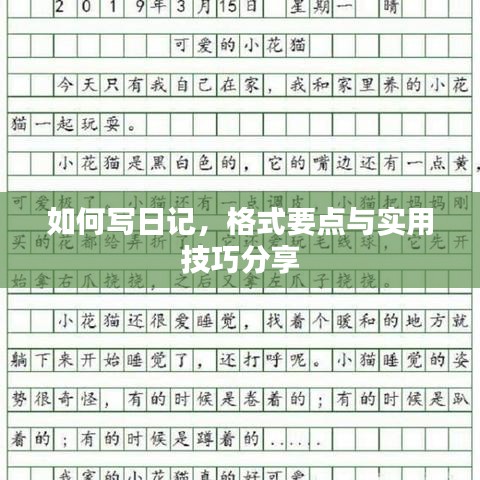 2019年3月15日 星期一 晴
可爱的小花猫
今天只有我自己在家，我和家里养的小花
猫一起玩耍。
小花猫是黑白色的，它的嘴边还有一点黄，
可爱极了。小猫还有一点调皮，小猫把妈妈刚
如何写日记，格式要点与实用
买的花都给弄 它还爱玩毛线球，它先开
技巧分享
始拿右爪挠挠，之后又拿左爪子挠挠。
小花猫还很爱睡觉，找着个暖和的地方就
躺下来开始睡觉了，还打呼呢。小猫睡觉的姿
势很奇怪，有的时候是卷着的；有的时候是趴
着的；有的时候是蹲着的......
我家的小花猫真的好可爱